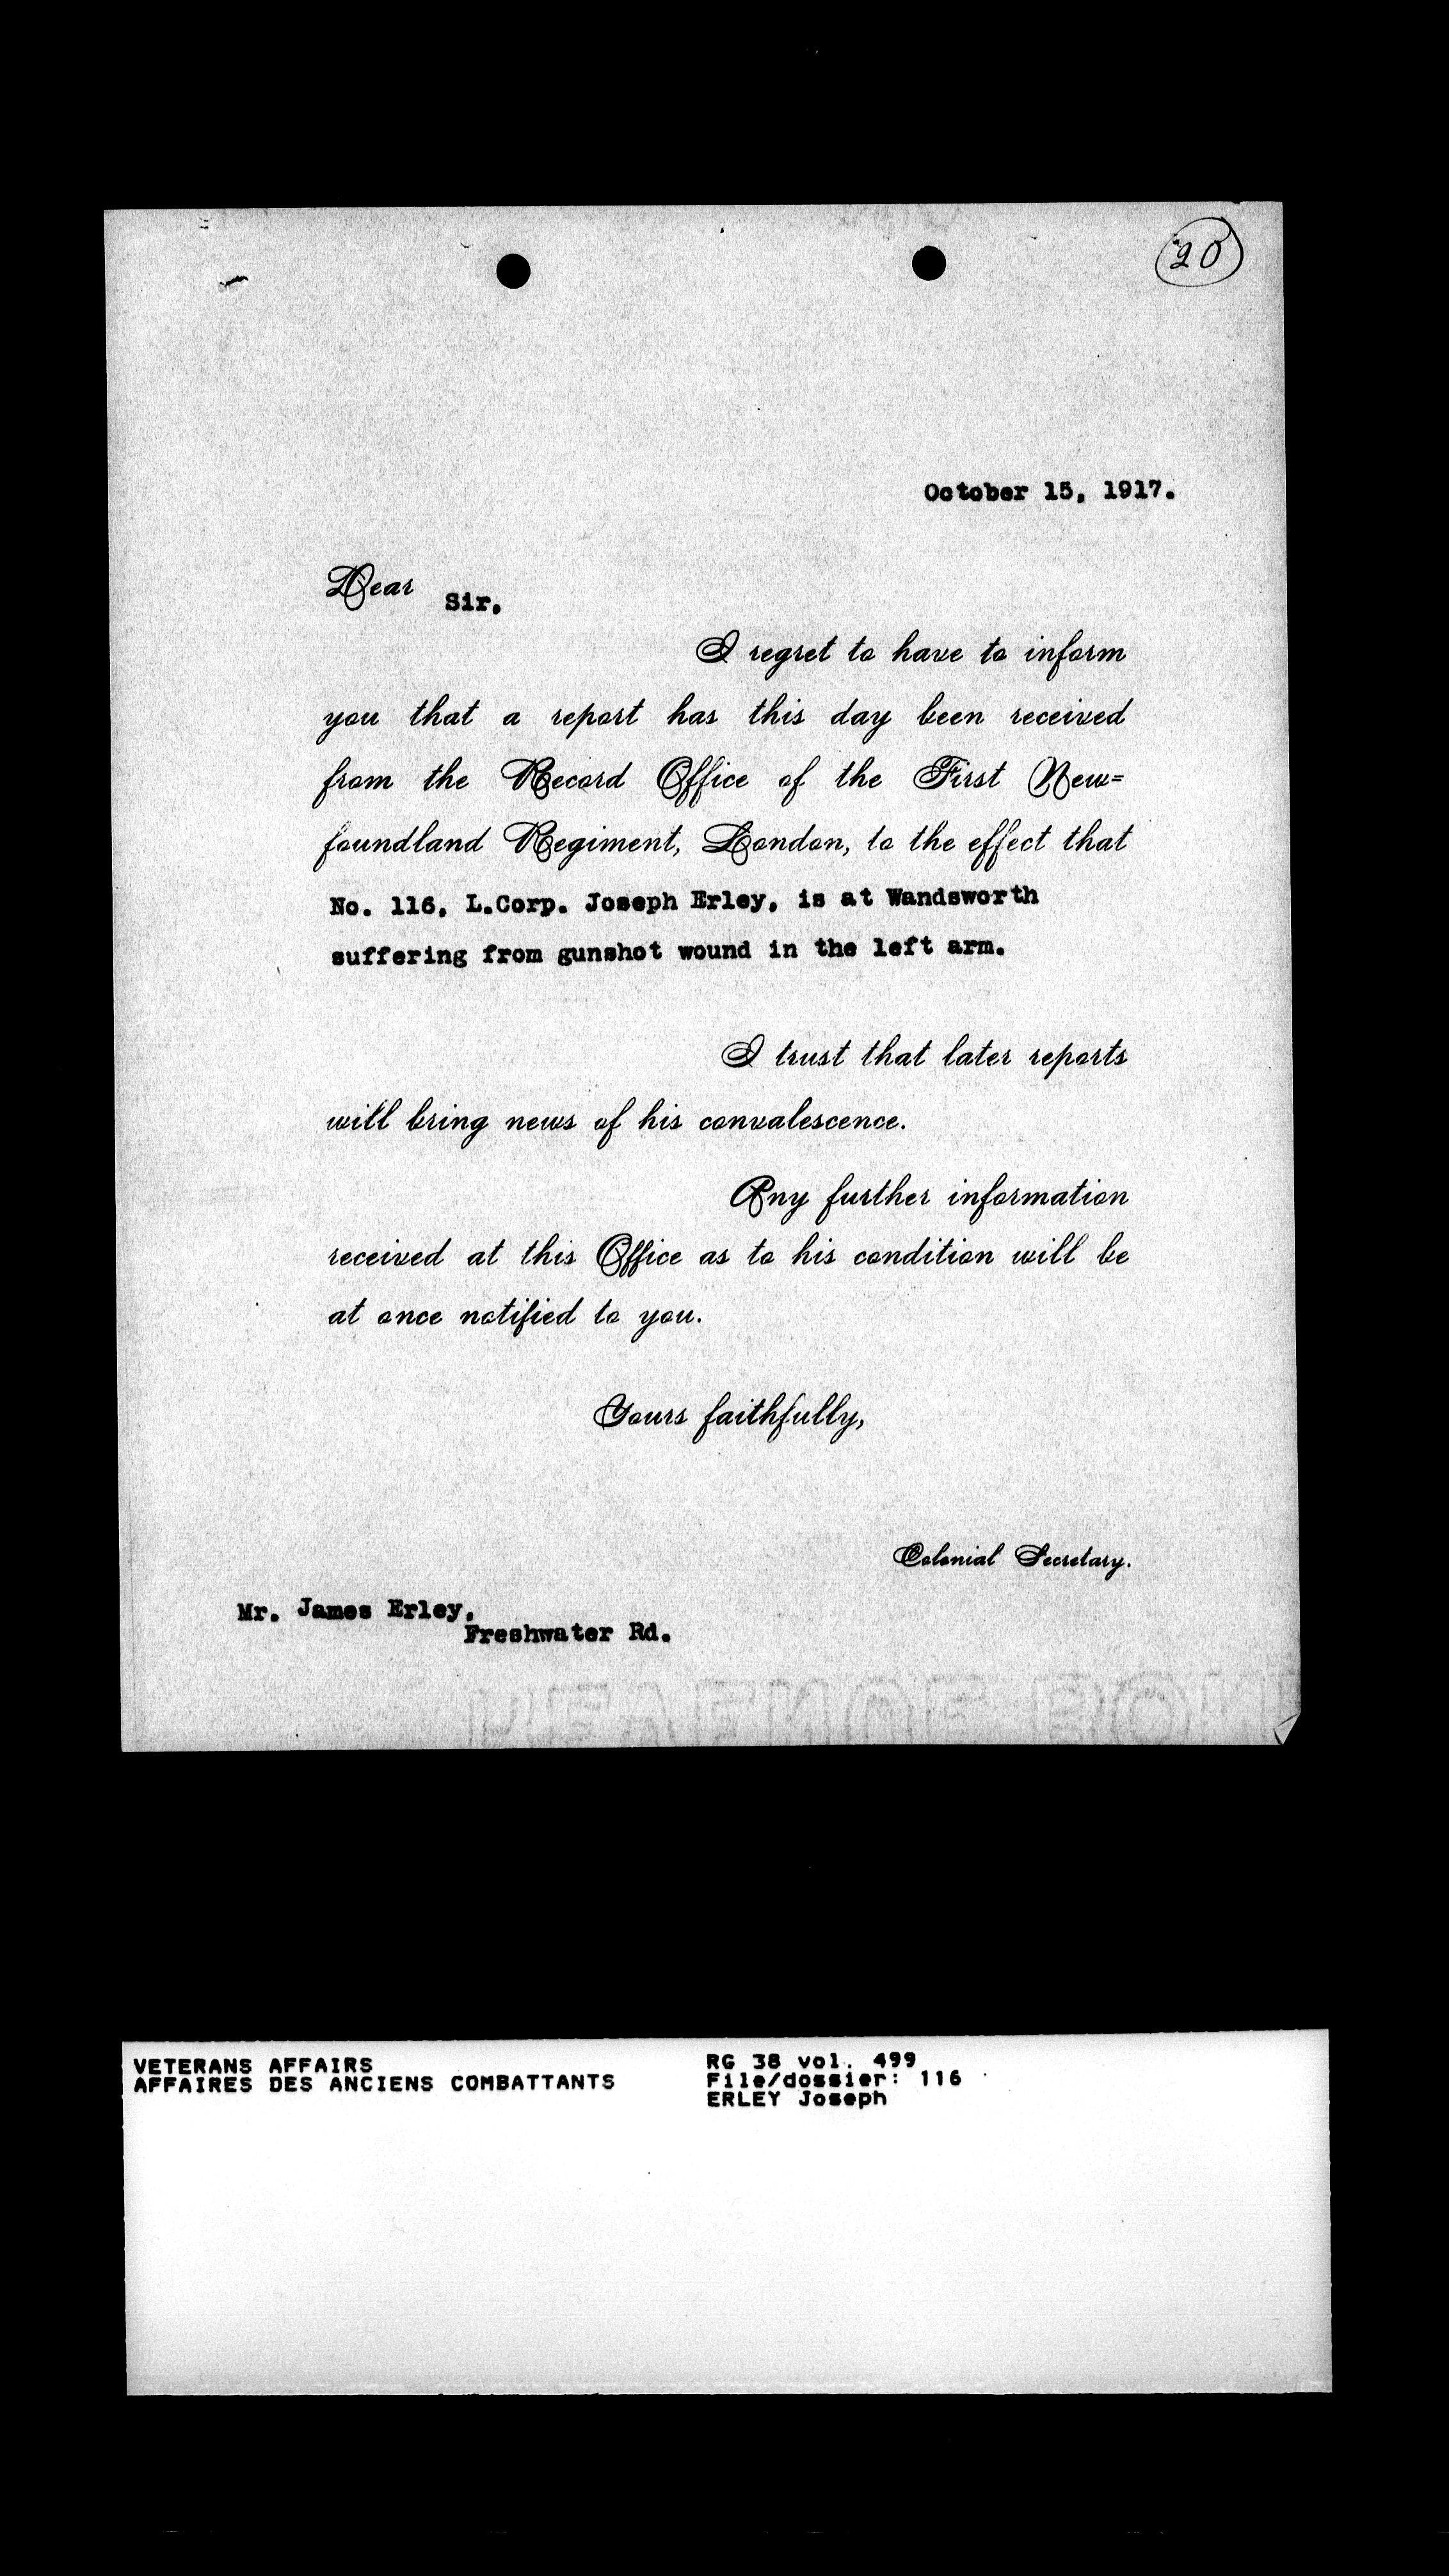 20
October 15, 1917.
Dear Sir,
I regret to have to inform
you that a report has this day been received
from the Record Office of the First New=
foundland Regiment, London, to the effect that
No. 116, L.Corp. Joseph Erley, is at Wandsworth
suffering from gunshot wound in the left arm.
I trust that later reports
will bring news of his convalescence.
Any further information
received at this Office as to his condition will be
at once notified to you.
Yours faithfully,
Colonial Secretary.
Mr. James Erley,
Freshwater Rd.
VETERANS AFFAIRS
AFFAIRES DES ANCIENS COMBATTANTS
RG 38 vol. 499
File/dossier: 116
ERLEY Joseph